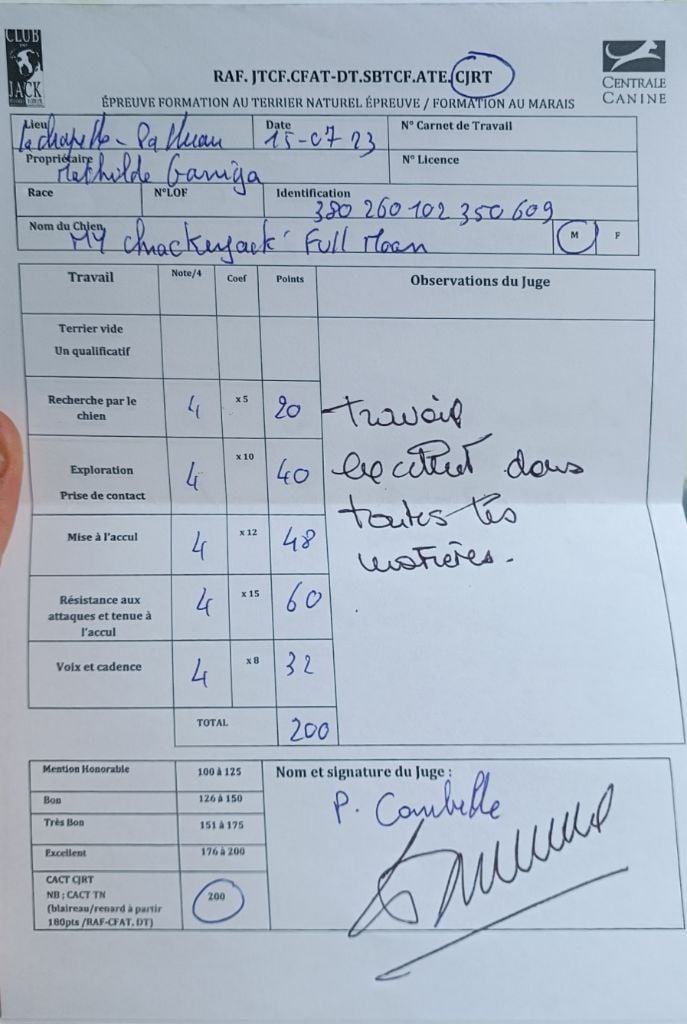 CLUB
JACK
RAF. JTCF.CFAT-DT.SBTCF.ATE.CJRT
CENTRALE
CANINE
ÉPREUVE FORMATION AU TERRIER NATUREL ÉPREUVE / FORMATION AU MARAIS
Lieu La chapelle - Palluau
Date 15-07 23
N° Carnet de Travail
Propriétaire Mathilde
N° Licence
Race
N°LOF
Identification 380 260 102 350 609
Nom du Chien MY Full Moon
M
F
Travail
Note/4
Coef
Points
Observations du Juge
Terrier vide
Un qualificatif
Recherche par le
chien
4 x 5 20
Exploration
Prise de contact
4 x 10 40
Mise à l'accul 4 x 12 48
Résistance aux
attaques et tenue à
l'accul
4 x 15 60
Voix et cadence 4 x 8 32
TOTAL 200
travail
excellent dans
toutes les
matières.
Mention Honorable 100 à 125
Bon 126 à 150
Très Bon 151 à 175
Excellent 176 à 200
CACT CJRT
NB : CACT TN
(blaireau/renard à partir
180pts /RAF-CFAT. DT)
200
Nom et signature du Juge :
P.